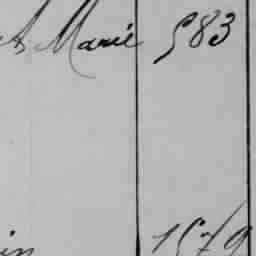 Marie 583
in 1579